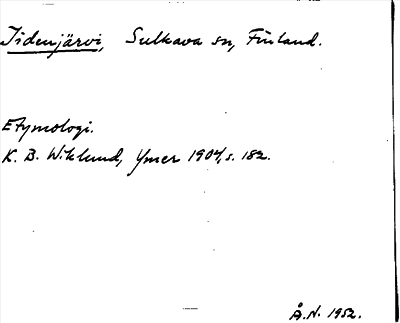 Iidenjärvi, Sulkava sn, Finland.
Etymologi.
K. B. Wiklund, Ymer 1904, s. 182.
Å. N. 1952.